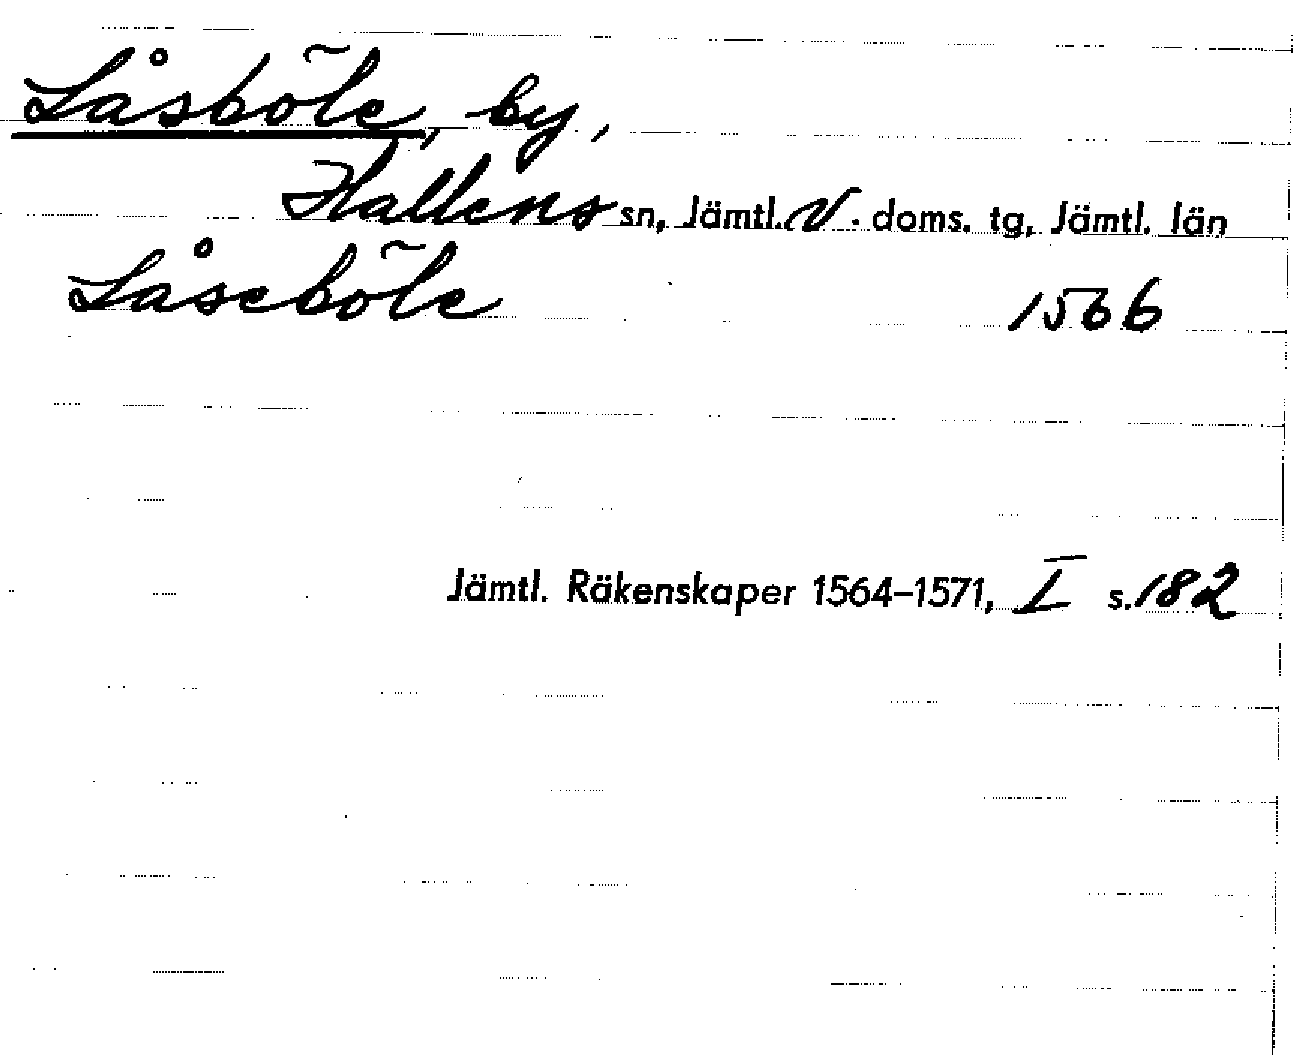 Låsböle, by,
Hallens sn, Jämtl. V. doms. tg, Jämtl. län
Låseböle 1566
Jämtl. Räkenskaper 1564–1571, I s. 182